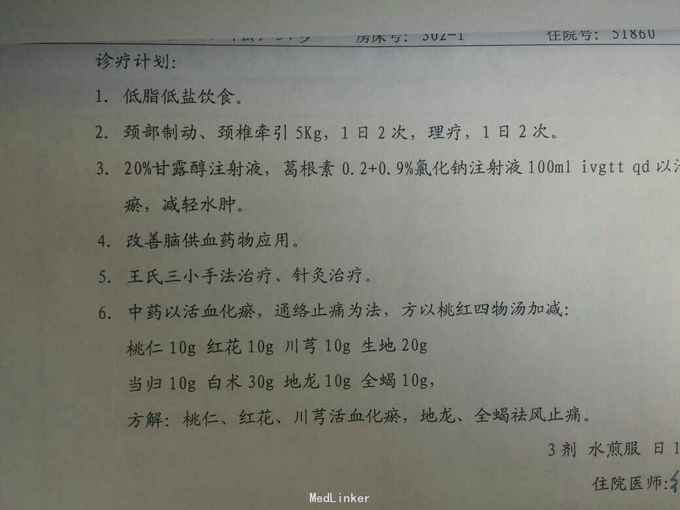 房床号: 302-1 住院号: 51860
诊疗计划:
1. 低脂低盐饮食。
2. 颈部制动、颈椎牵引 5Kg, 1 日 2 次, 理疗, 1 日 2 次。
3. 20%甘露醇注射液, 葛根素 0.2+0.9%氯化钠注射液 100ml ivgtt qd 以
瘀, 减轻水肿。
4. 改善脑供血药物应用。
5. 王氏三小手法治疗、针灸治疗。
6. 中药以活血化瘀, 通络止痛为法, 方以桃红四物汤加减:
桃仁 10g 红花 10g 川芎 10g 生地 20g
当归 10g 白术 30g 地龙 10g 全蝎 10g,
方解: 桃仁、红花、川芎活血化瘀, 地龙、全蝎祛风止痛。
3 剂 水煎服 日 1
住院医师:
MedLinker